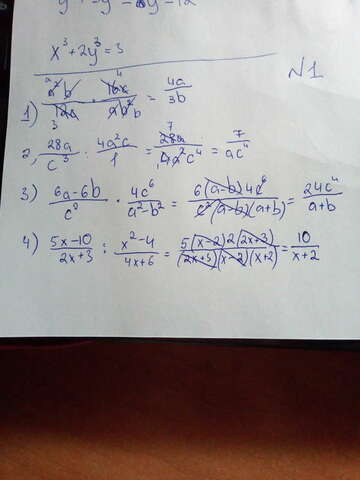 x³+2y³=3
N1
1) a²b/12a · 16x/ab²b = 4a/3b
2, 28a/c³ : 4a²c/1 = 28a/4a²c⁴ = 7/ac⁴
3) 6a-6b/c² · 4c⁶/a²-b² = 6(a-b)4c⁶/c²(a-b)(a+b) = 24c⁴/a+b
4) 5x-10/2x+3 : x²-4/4x+6 = 5(x-2)2(2x+3)/(2x+3)(x-2)(x+2) = 10/x+2